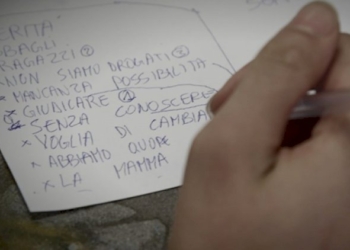 VERITÀ
SBAGLI
RAGAZZI ②
NON SIAMO DROGATI
* MANCANZA POSSIBILITÀ
GIUDICARE
SENZA CONOSCERE
* VOGLIA DI CAMBIA
* ABBIAMO CUORE
* LA MAMMA